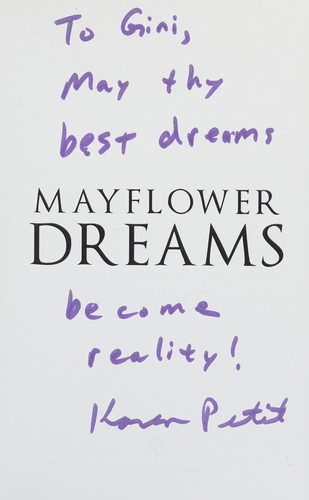 To Gini,
May thy
best dreams
MAYFLOWER
DREAMS
become
reality!
Karen Petit